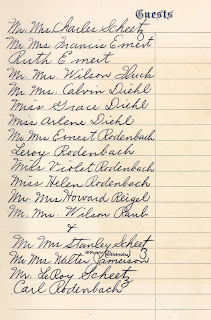 Guests
Mr. Mrs. Charles Scheetz
Mr Mrs Francis Emert
Ruth Emert
Mr. Mrs. Wilson Fluck
Mr. Mrs. Calvin Diehl
Miss Grace Diehl
Miss Arlene Diehl
Mr Mrs Ernest Rodenbach
Leroy Rodenbach
Miss Violet Rodenbach
Miss Helen Rodenbach
Mr. Mrs Howard Reigel
Mr. Mrs. Wilson Raub
&
Mr Mrs Stanley Scheetz
Mr Mrs Walter Jamerson
Mr. LeRoy Scheetz
Carl Rodenbach